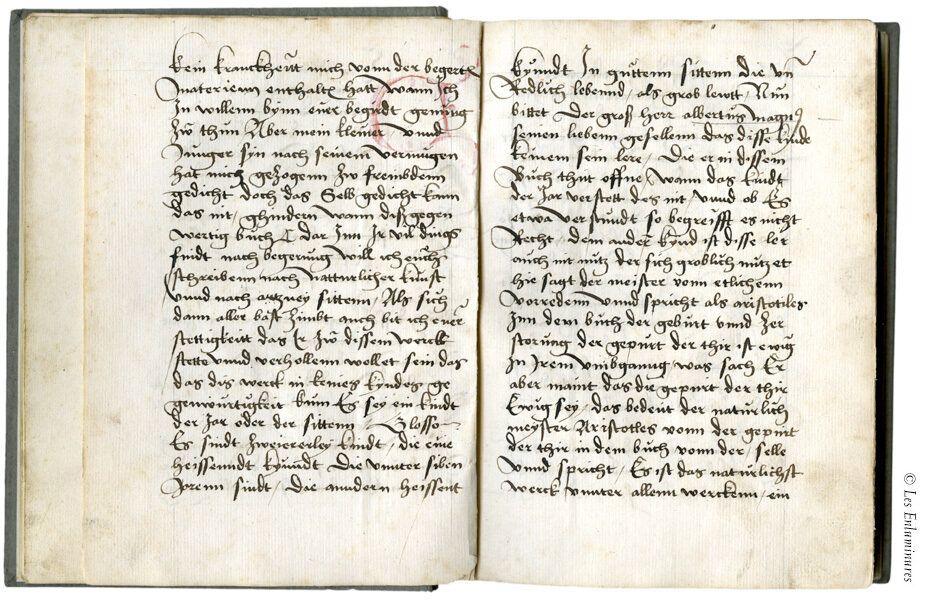 kein kranckheytt mich vonn der begertn
materienn enthaltn hatt wann Ich
In willenn bynn euer begirdt genung
Zw thun Aber mein kleiner vnnd
Junger syn nach seinem vermugen
hat mich gezogenn Zw frembdem
gedicht doch das Selb gedicht kann
das nit ghindern wann diß gegen
wertig buch dar Inn Ir vil dings
findt nach begerung will ich euch
schreibenn nach natturlicher kunst
vnnd nach artzney sittenn / Als sich
dann aller bast Zimbt auch bit ich euer
stettigkeitt das Ir Zw dissem werck
stette vnnd verhollenn wollet sein das
das dis werck in keines kyndes ge
genwurtigkeit kum Es sey ein kindt
der Jar oder der sittenn / Glosso
Es sindt Zweiererley kindt / die eine
heissenndt kynndt Die vnnter siben
Jarenn sindt / Die anndern heissent
kynndt In guttenn sittenn die vn
Redlich lebennd / als grob lewtt / Nun
bittet Der groß herr albertus magnus
seinen liebenn gesellenn das disse kinde
keinem sein lere / Die er in dissem
Buch thut offne / wann das kindt
der Jar verstett des nit vnnd ob Es
etwa verstundt so begreifft es nicht
Recht / dem ander kynd ist disse ler
auch nit nutz der sich groblich nutzet
hie sagt der meister vonn etlichenn
vorredenn vnnd spricht als aristotiles
Inn dem buch der geburt vnnd Zer
storung der gepurt der thir ist ewig
In Irem vmbgannig was sach Er
aber maint das die gepurt der thir
Ewig sey / das bedeut der naturlich
meyster Aristotles vonn der gepurt
der thir in dem buch vonn der / selle
Vnnd spricht / Es ist das naturlichst
werck vnnter allenn werckenn / ein
© Les Enluminures